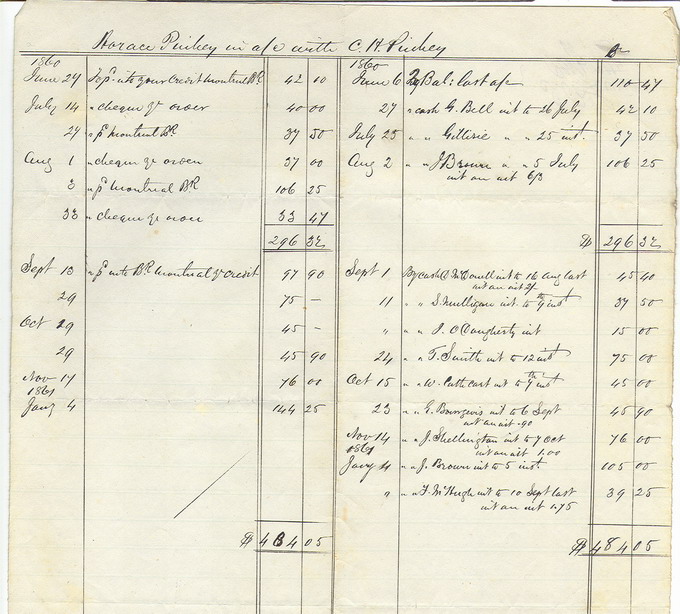 Horace Pinhey in a/c with C. H. Pinhey
1860
June 27 To pd into your Credit Montreal Bk 42 10
July 14 " cheque yr order 40 00
27 " pd Montreal Bk 37 50
Aug 1 " cheque yr order 37 00
3 " pd Montreal Bk 106 25
" cheque yr order 33 47
296 32
Sept 13 " pd into Bk Montreal yr credit 97 90
29 75 –
Oct 29 45 –
29 45 90
Nov 17 76 00
1861
Jany 4 144 25
$ 484 05
1860
June 6 By Bal: last a/c 110 47
27 " cash G. Bell int to 26 July 42 10
July 25 " " " " 25 inst 37 50
Aug 2 " " J Brown " " 5 July 106 25
int on int 6/3
$ 296 32
Sept 1 By cash int to 16 Aug last 45 40
int on int 2/-
11 " " S. Mulligan int to 9th inst 37 50
" " " J. O'Dougherty int 15 00
24 " " T. Smith int to 12 inst 75 00
Oct 15 " " W. Cathcart int to 9th inst 45 00
23 " " G. Bourgeois int to 6 Sept 45 90
int on int .90
Nov 14 " " J. Shellington int to 7 Oct 76 00
int on int 1.00
1861
Jany 4 " " J. Brown int to 5 inst 105 00
" " " T. McHugh int to 10 Sept last 39 25
int on int 1.75
$ 484 05